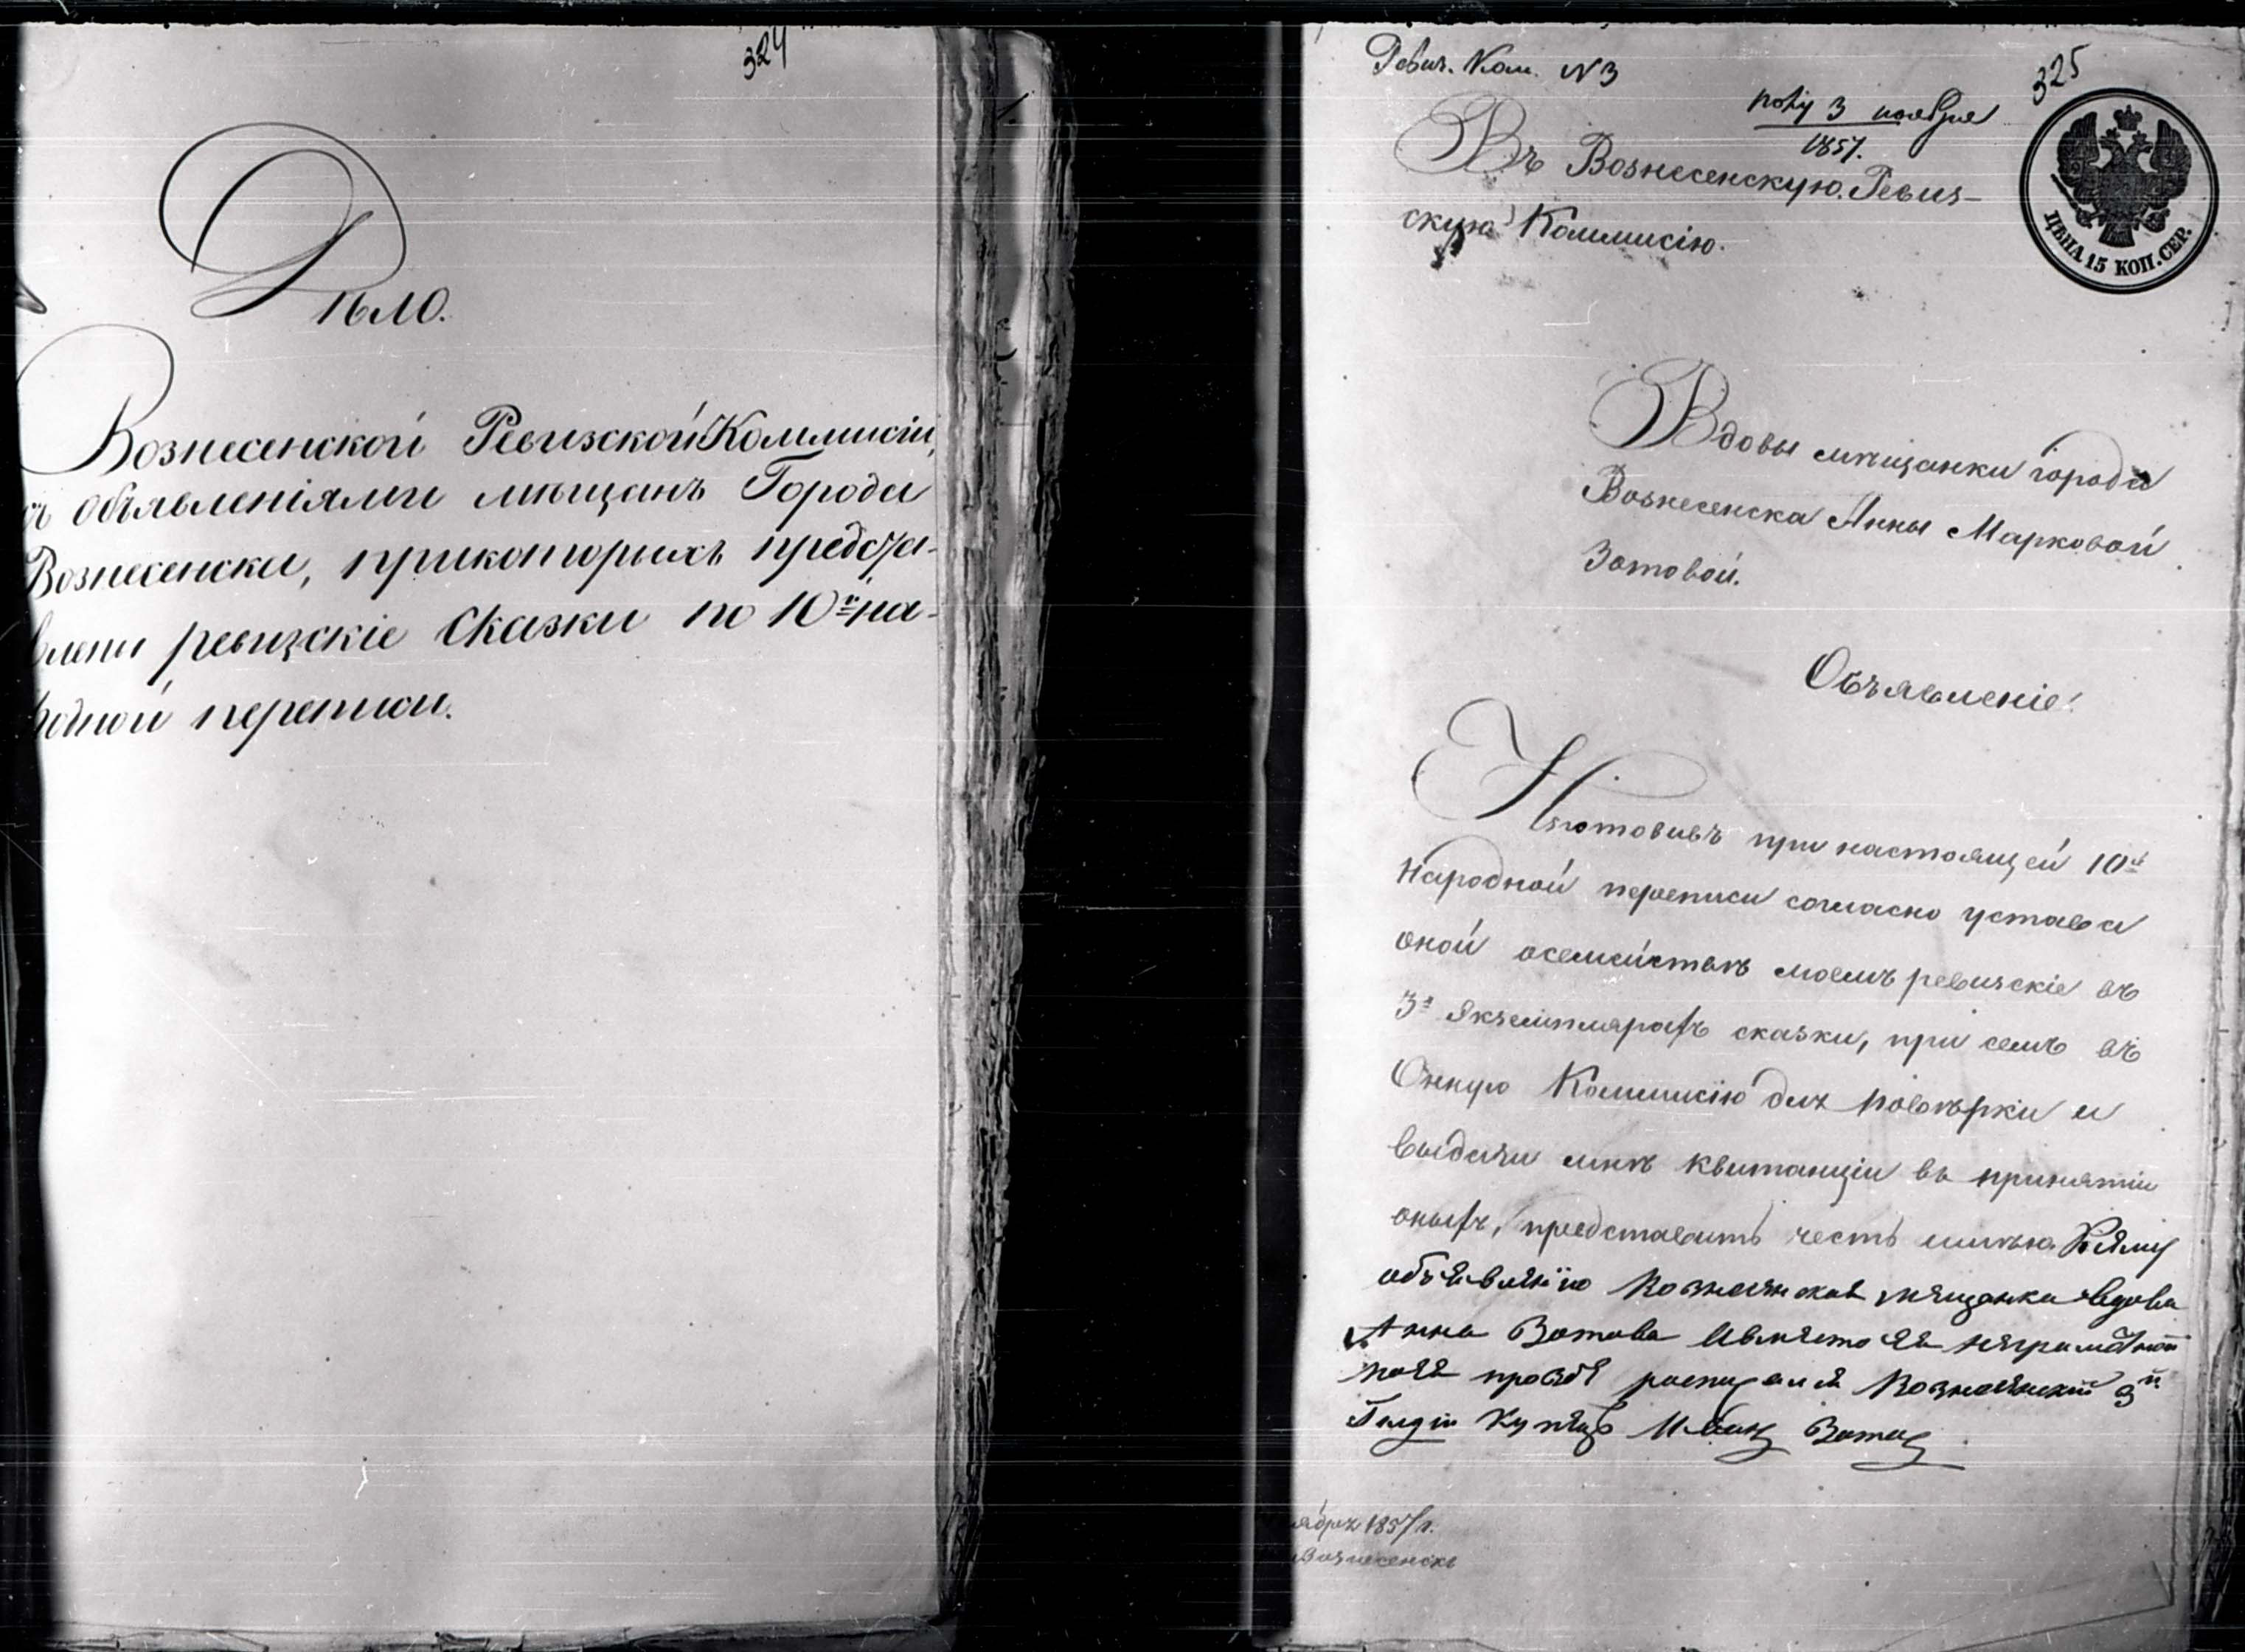 324
Дѣло.
Вознесенской Ревизской Коммисіи,
съ объявленіями мѣщанъ Города
Вознесенска, прикоторыхъ предста-
влены ревизскіе Сказки по 10й на-
родной переписи.
Ревиз. Ком. N 3
325
полу 3 ноября
1857.
Въ Вознесенскую Ревиз-
скую Коммисію.
ЦѢНА 15 КОП. СЕР.
Вдовы мѣщанки города
Вознесенска Анны Марковой
Зотовой.
Объявленіе.
Изготовивъ при настоящей 10й
Народной переписи согласно устава
оной осемействѣ моемъ ревизскіе въ
3х Экземплярахъ сказки, при семъ въ
Оную Коммисію для повѣрки и
выдачи мнѣ квитанціи въ принятіи
оныхъ, представить честь имѣю. Ксяму
объявлянію Вознесянская мящанка вдова
Анна Зотова авмясто яя няграмотной
пояя прозбѣ росписался Вознесянский 3й
Гилдіи Купяцъ Иванъ Зотовъ
ября 1857 г.
Вознесенскъ